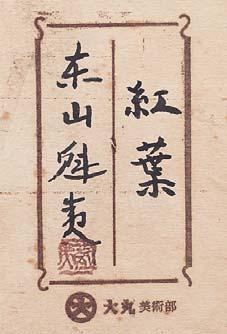 紅葉
東山魁夷
大丸 美術部